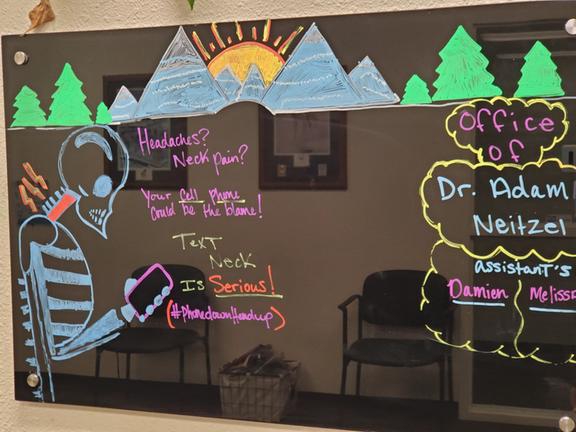 Headaches?
Neck pain?
Your Cell Phone
Could be the blame!
Text
Neck
Is Serious!
(#Phonedownheadup)
Office
of
Dr. Adam
Neitzel
assistant's
Damien
Meliss